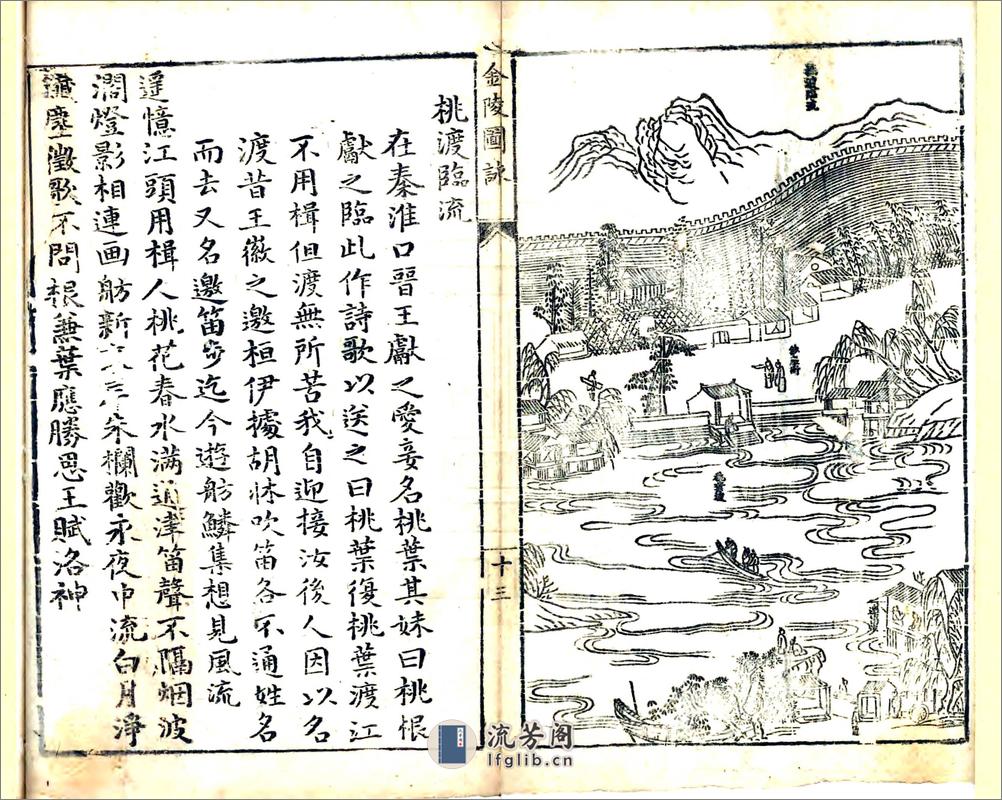 桃渡臨流
金陵圖詠
十三
桃渡臨流
在秦淮口晉王獻之愛妾名桃葉其妹曰桃根
獻之臨此作詩歌以送之曰桃葉復桃葉渡江
不用楫但渡無所苦我自迎接汝後人因以名
渡昔王徽之邀桓伊據胡牀吹笛各不通姓名
而去又名邀笛步迄今遊舫鱗集想見風流
遥憶江頭用楫人桃花春水满通津笛聲不隔烟波
濶燈影相連画舫新 朱欄歡永夜中流白月淨
纖塵徵歌不問根蒹葉應勝思王賦洛神
流芳阁
lfglib.cn